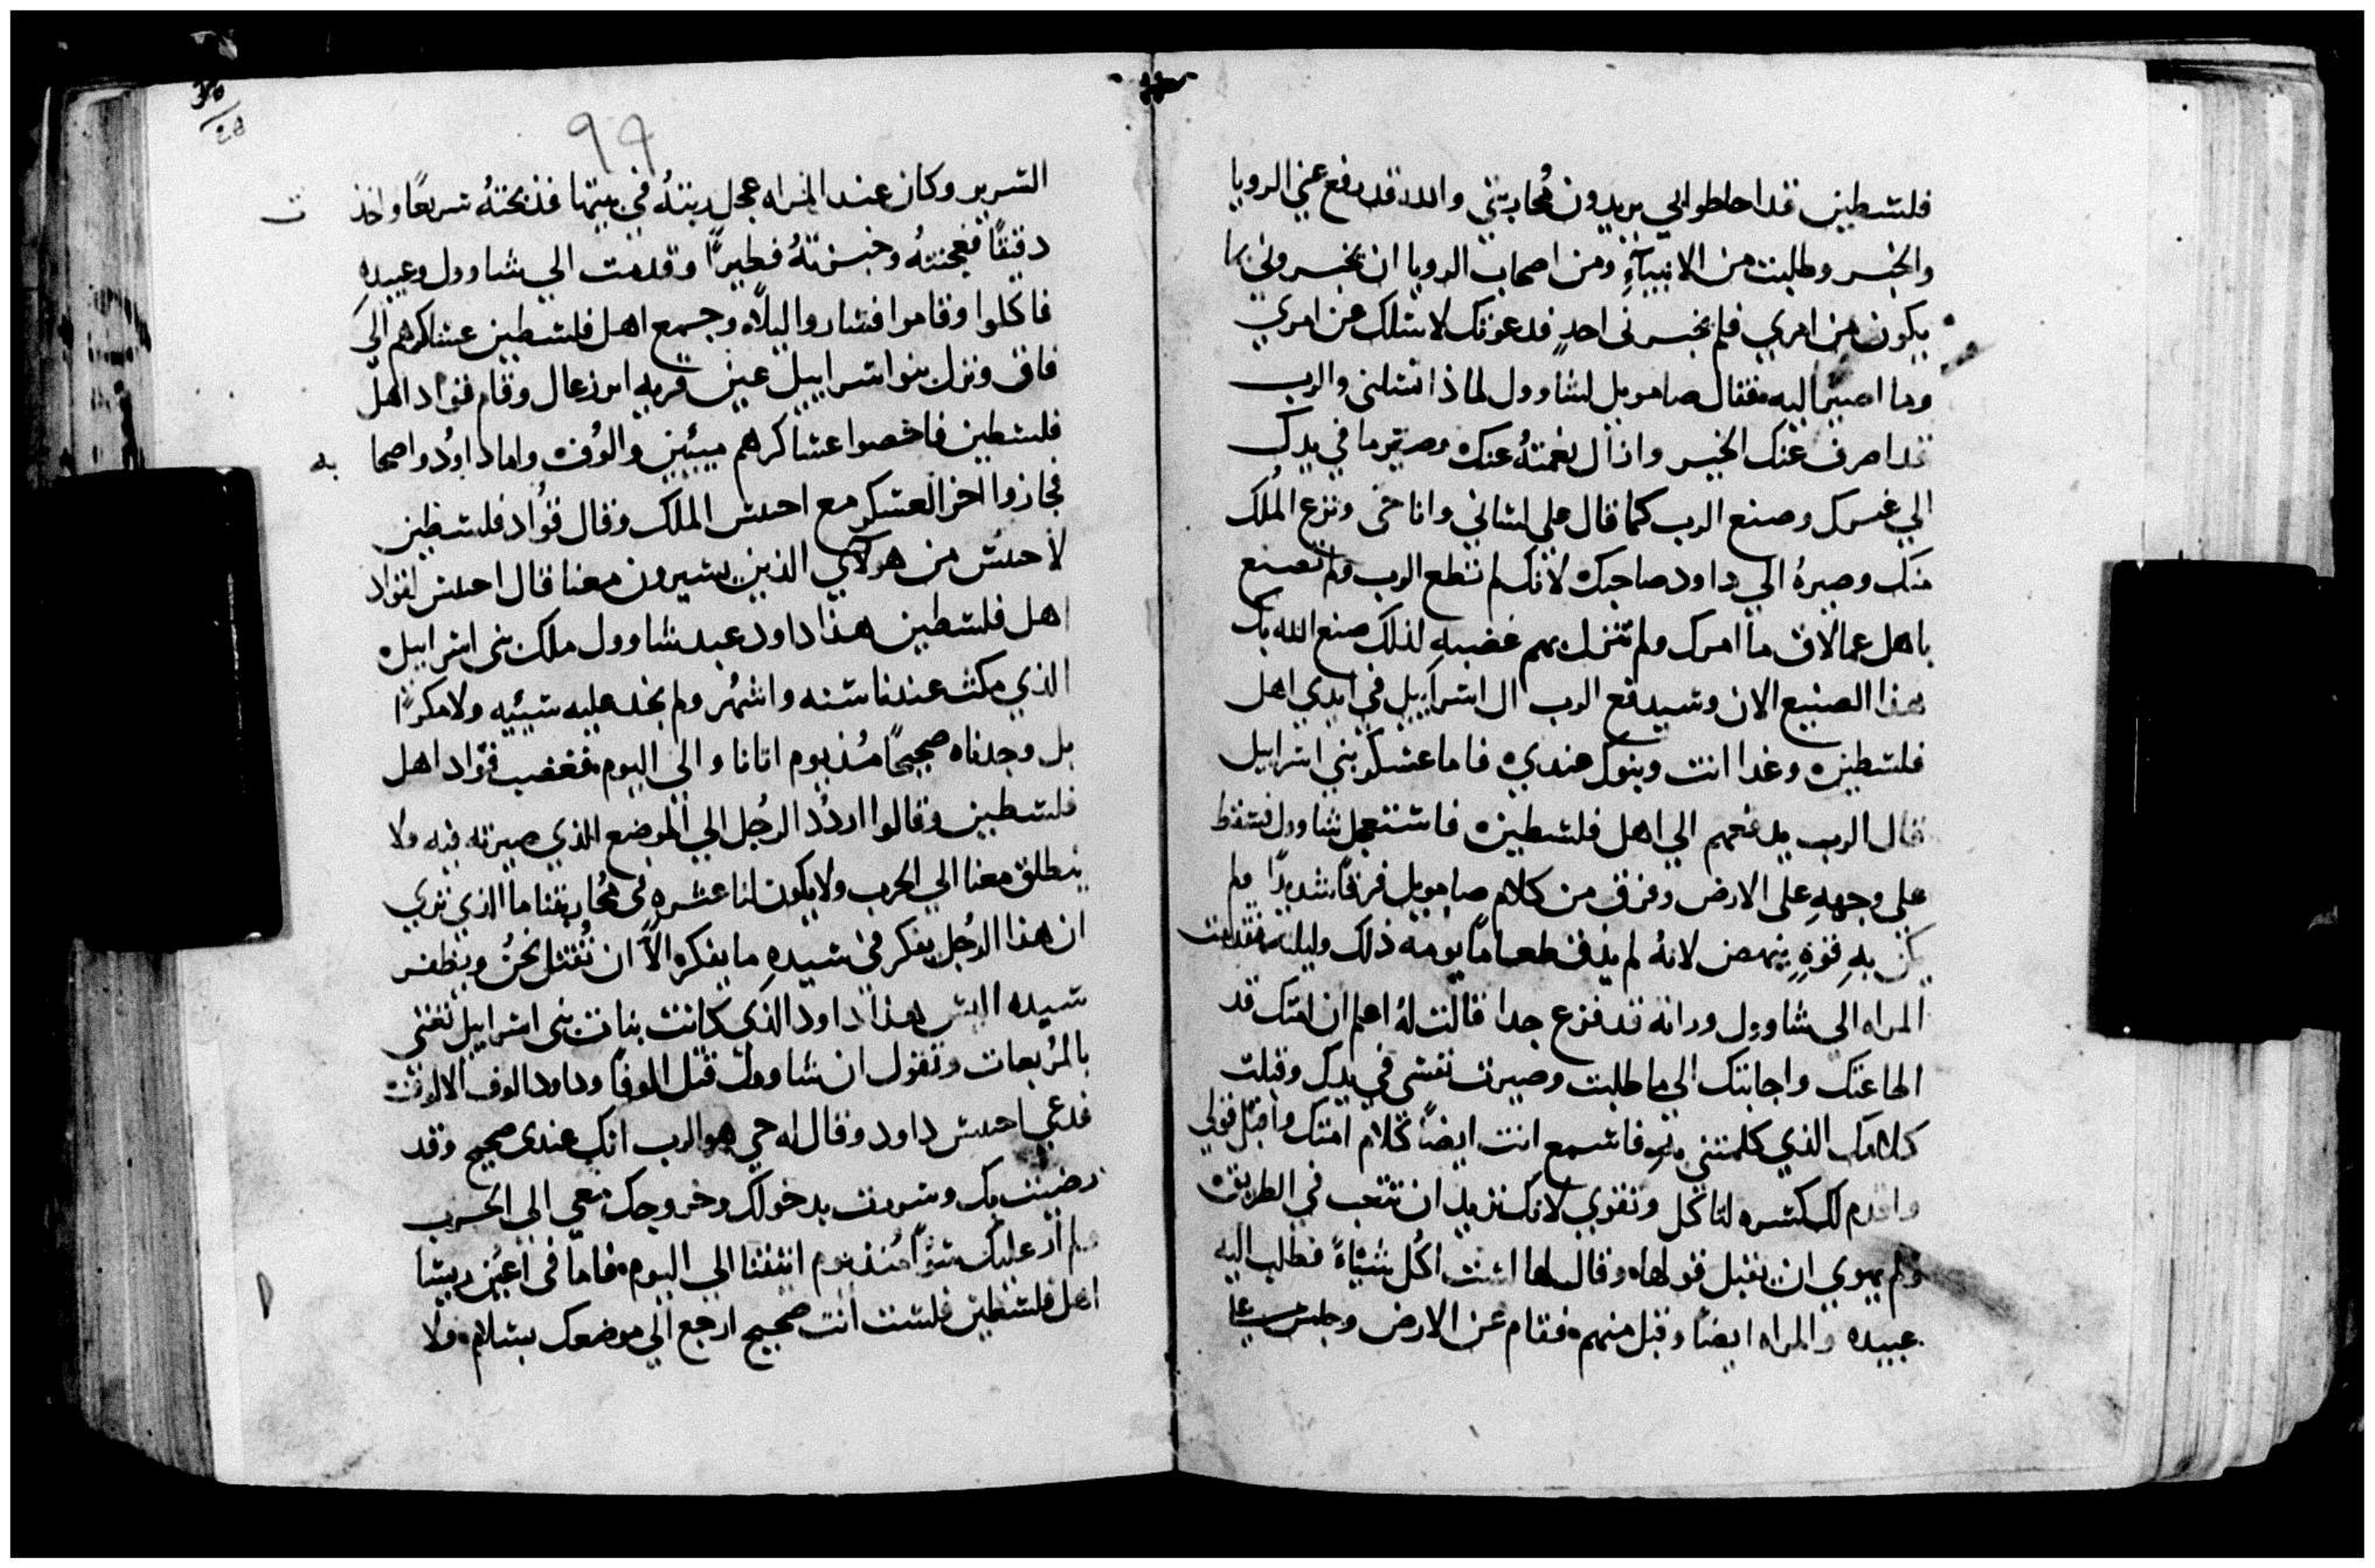 فلسطين قد احاطوا بي يريدون محاربتي والله قد رفع عني الرويا
والخبر وطلبت من الانبيآءِ ومن اصحاب الرويا ان يخبروني بما
يكون من امري فلم يخبرني احدٍ فدعوتك لاسلك عن امري
وما اصير اليه فقال صامويل لشاوول لماذا تسلني والرب
قد اصرف عنك الخير وازال نعمتهُ عنك وصير ما في يدك
الي غيرك وصنع الرب كما قال علي لساني وانا حي ونزع المُلك
منك وصيرهُ الي داود صاحبك لانك لم تطع الرب ولم تصنع
باهل عمالاق ما امرك ولم تنزل بهم غضبهِ لذلك صنع الله بك
هذا الصنيع الان وسيدفع الرب ال اسراييل في ايدي اهل
فلسطين وغدا انت وبنوك عندي فاما عسكر بني اسراييل
فان الرب يدفعهم الي اهل فلسطين فاستعجل شاوول فسقط
علي وجههِ علي الارض وفرق من كلام صامويل فرقاً شديداً ولم
يكن بهِ قوةٍ ينهض لانهُ لم يذق طعاماً يومه ذلك وليلته فتقدمت
المراه الي شاوول وراته قد فزع جدا قالت لهُ اعلم ان امتك قد
اطاعتك واجابتك الي ما طلبت وصيرت نفسي في يدك وقبلت
كلامك الذي كلمتني به فاسمع انت ايضاً كلام امتك واقبل قولي
واقدم لك كسره لتاكل وتقوي لانك تريد ان تتعب في الطريق
ولم يهوي ان يقبل قولها وقال لها لست اكُل شياةً فطلب اليه
عبيده والمراه ايضاً وقبل منهم فقام عن الارض وجلس علي
99
السرير وكان عند المراه عجل ربتهُ في بيتها فذبحتهُ سريعاً واخذت
دقيقاً فعجنتهُ وخبزتهُ فطيراً وقدمت الي شاوول وعبيده
فاكلوا وقاموا فساروا ليلاً وجمع اهل فلسطين عساكرهم الي
فاق ونزل بنوا اسراييل عين قريه ايزرعال وقام قواد اهل
فلسطين فاحصوا عساكرهم مييين والُوف واما داوُد واصحابه
فجازوا اخر العسكر مع احيس الملك وقال قواد فلسطين
لاحيس من هولاي الذين يسيرون معنا قال احيس لقواد
اهل فلسطين هذا داود عبد شاوول ملك بني اسراييل
الذي مكث عندنا سنه واشهُر ولم نجد عليه سييه ولا مكراً
بل وجدناه صحيحاً مُنذ يوم اتانا والي اليوم فغضب قوّاد اهل
فلسطين وقالوا اردُد الرجُل الي الموضع الذي صيرته فيه ولا
ينطلق معنا الي الحرب ولا يكون لنا عثره في مُحاربتنا ما الذي تري
ان هذا الرجُل يفكر في سيدهِ ما يفكره الاّ ان نُقتل نحنُ ويظفر
سيده اليس هذا داود الذي كانت بنات بني اسراييل تغني
بالمُربعات وتقول ان شاوول قتل الوفاً وداود الوف الالوف
فدعي احيس داود وقال له حي هو الرب انك عندي صحيح وقد
رضيت بك وسررت بدخولك وخروجك معي الي الحرب
ولم ار عليك سوّاً مُنذ يوم اتيتنا الي اليوم فاما في اعيُن رييسا
اهل فلسطين فلست انت صحيح ارجع الي موضعك بسلام ولا